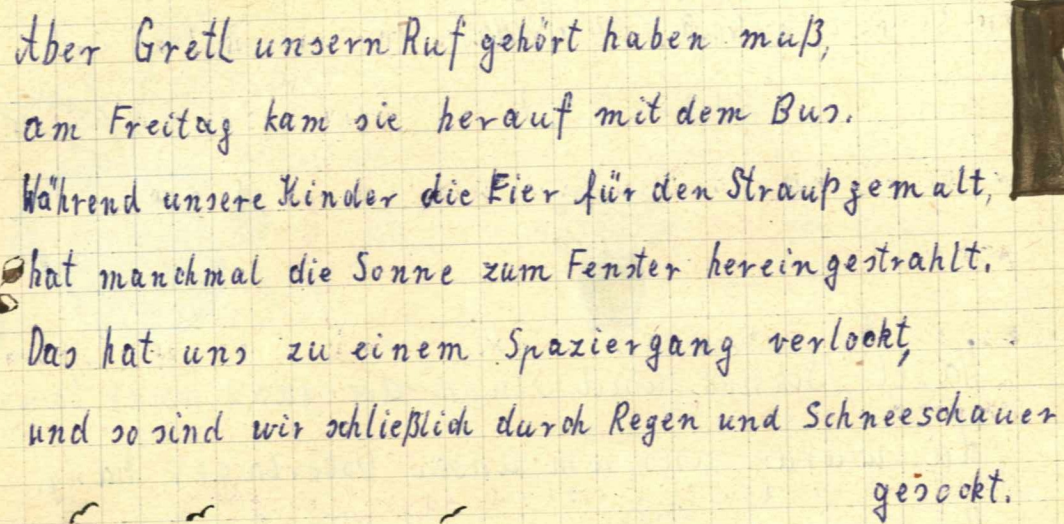 Aber Gretl unsern Ruf gehört haben muß,
am Freitag kam sie herauf mit dem Bus.
Während unsere Kinder die Eier für den Strauß gemalt,
hat manchmal die Sonne zum Fenster hereingestrahlt.
Das hat uns zu einem Spaziergang verlockt,
und so sind wir schließlich durch Regen und Schneeschauer
gesockt.